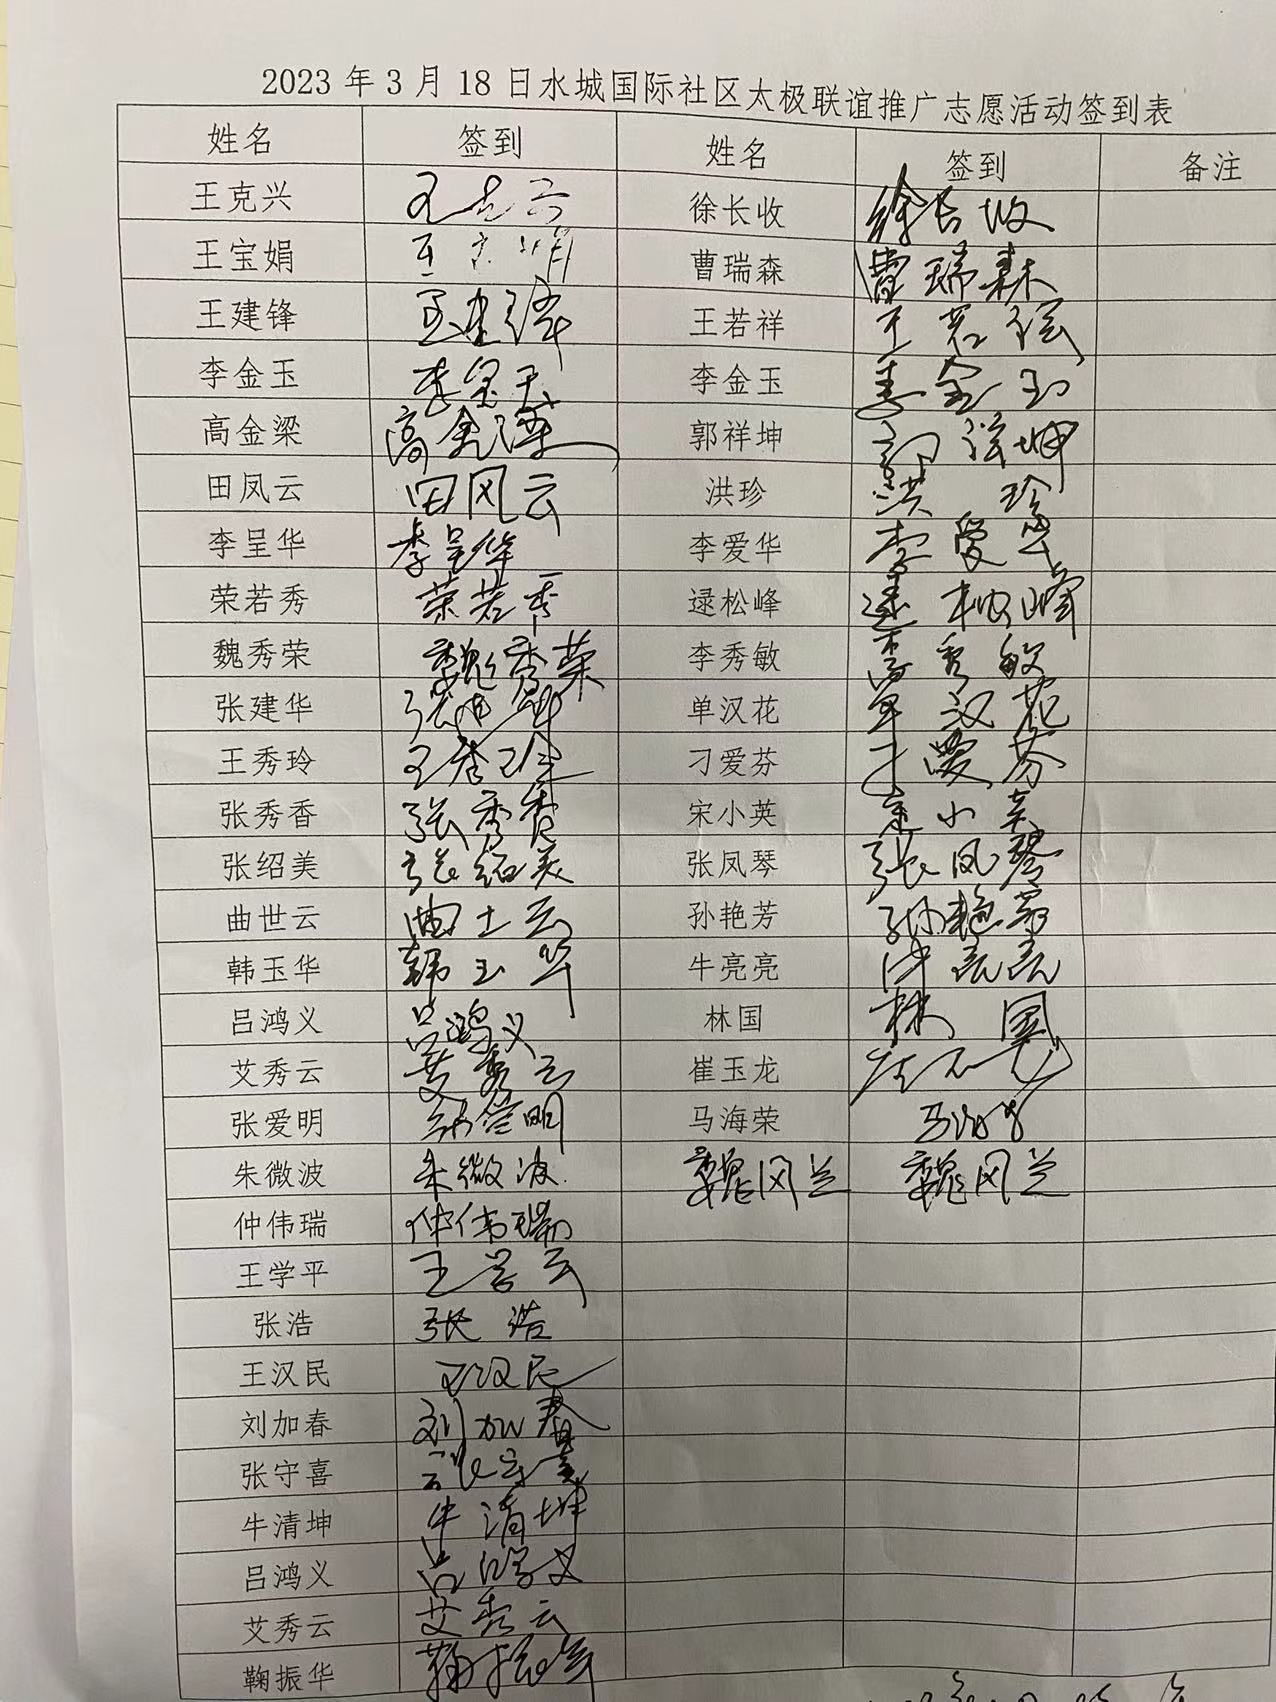 2023年3月18日水城国际社区太极联谊推广志愿活动签到表
姓名 签到 姓名 签到 备注
王克兴 王克兴 徐长收 徐长收
王宝娟 王宝娟 曹瑞森 曹瑞森
王建锋 王建锋 王若祥 王若祥
李金玉 李金玉 李金玉 李金玉
高金梁 高金梁 郭祥坤 郭祥坤
田凤云 田风云 洪珍 洪珍
李呈华 李呈华 李爱华 李爱华
荣若秀 荣若秀 逯松峰 逯松峰
魏秀荣 魏秀荣 李秀敏 李秀敏
张建华 张建华 单汉花 单汉花
王秀玲 王秀玲 刁爱芬 刁爱芬
张秀香 张秀香 宋小英 宋小英
张绍美 张绍美 张凤琴 张凤琴
曲世云 曲士云 孙艳芳 孙艳芳
韩玉华 韩玉华 牛亮亮 牛亮亮
吕鸿义 吕鸿义 林国 林国
艾秀云 艾秀云 崔玉龙 崔玉龙
张爱明 张爱明 马海荣 马海荣
朱微波 朱微波 魏风兰 魏风兰
仲伟瑞 仲伟瑞
王学平 王学平
张浩 张浩
王汉民 王汉民
刘加春 刘加春
张守喜 张守喜
牛清坤 牛清坤
吕鸿义 吕鸿义
艾秀云 艾秀云
鞠振华 鞠振华